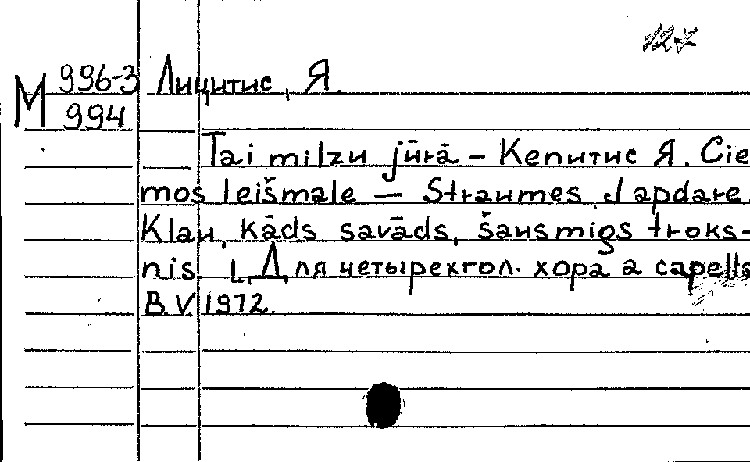 М 996-3 Лицитис, Я.
994
Tai milzu jūrā – Кепитис Я. Cie-
mos leišmalē – Straumes J apdare.
Klau, kāds savāds, šausmīgs troks-
nis. [Для четырехгол. хора a capella
B.V. 1972.